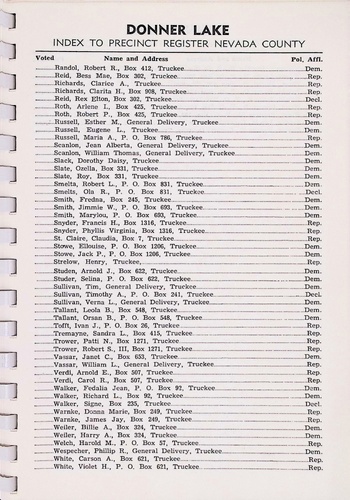 DONNER LAKE
INDEX TO PRECINCT REGISTER NEVADA COUNTY
Voted Name and Address Pol. Affl.
Randol, Robert R., Box 412, Truckee Dem.
Reid, Bess Mae, Box 302, Truckee Rep.
Richards, Clarice A., Truckee Rep.
Richards, Clarita H., Box 908, Truckee Rep.
Reid, Rex Elton, Box 302, Truckee Decl.
Roth, Arlene I., Box 425, Truckee Rep.
Roth, Robert P., Box 425, Truckee Rep.
Russell, Esther M., General Delivery, Truckee Dem.
Russell, Eugene L., Truckee Dem.
Russell, Maria A., P. O. Box 786, Truckee Rep.
Scanlon, Jean Alberta, General Delivery, Truckee Dem.
Scanlon, William Thomas, General Delivery, Truckee Dem.
Slack, Dorothy Daisy, Truckee Dem.
Slate, Ozella, Box 331, Truckee Dem.
Slate, Roy, Box 331, Truckee Dem.
Smelts, Robert L., P. O. Box 831, Truckee Dem.
Smelts, Ola R., P. O. Box 831, Truckee Decl.
Smith, Fredna, Box 245, Truckee Dem.
Smith, Jimmie W., P. O. Box 693, Truckee Dem.
Smith, Marylou, P. O. Box 693, Truckee Dem.
Snyder, Francis H., Box 1316, Truckee Rep.
Snyder, Phyllis Virginia, Box 1316, Truckee Rep.
St. Claire, Claudia, Box 7, Truckee Rep.
Stowe, Ellouise, P. O. Box 1206, Truckee Dem.
Stowe, Jack P., P. O. Box 1206, Truckee Dem.
Strelow, Henry, Truckee Rep.
Studen, Arnold J., Box 622, Truckee Dem.
Studer, Selina, P. O. Box 622, Truckee Dem.
Sullivan, Tim, General Delivery, Truckee Dem.
Sullivan, Timothy A., P. O. Box 241, Truckee Decl.
Sullivan, Verna L., General Delivery, Truckee Dem.
Tallant, Leola B., Box 548, Truckee Dem.
Tallant, Orsan B., P. O. Box 548, Truckee Dem.
Tofft, Ivan J., P. O. Box 26, Truckee Rep.
Tremayne, Sandra L., Box 415, Truckee Rep.
Trower, Patti N., Box 1271, Truckee Rep.
Trower, Robert S., III, Box 1271, Truckee Rep.
Vassar, Janet C., Box 653, Truckee Dem.
Vassar, William L., General Delivery, Truckee Rep.
Verdi, Arnold E., Box 507, Truckee Rep.
Verdi, Carol R., Box 507, Truckee Rep.
Walker, Fedalia Jean, P. O. Box 92, Truckee Dem.
Walker, Richard L., Box 92, Truckee Dem.
Walker, Signe, Box 235, Truckee Decl.
Warnke, Donna Marie, Box 249, Truckee Rep.
Warnke, James Jay, Box 249, Truckee Rep.
Weiler, Billie A., Box 324, Truckee Dem.
Weiler, Harry A., Box 324, Truckee Dem.
Welch, Harold M., P. O. Box 57, Truckee Rep.
Wespecher, Phillip R., General Delivery, Truckee Dem.
White, Carson A., Box 621, Truckee Rep.
White, Violet H., P. O. Box 621, Truckee Rep.